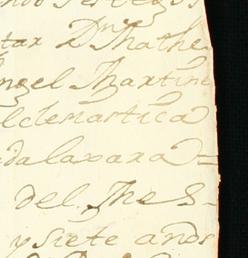 tar Dn Mathe
ngel Martine
lclemartica
dalaxara=
del Thes-
y siete anos